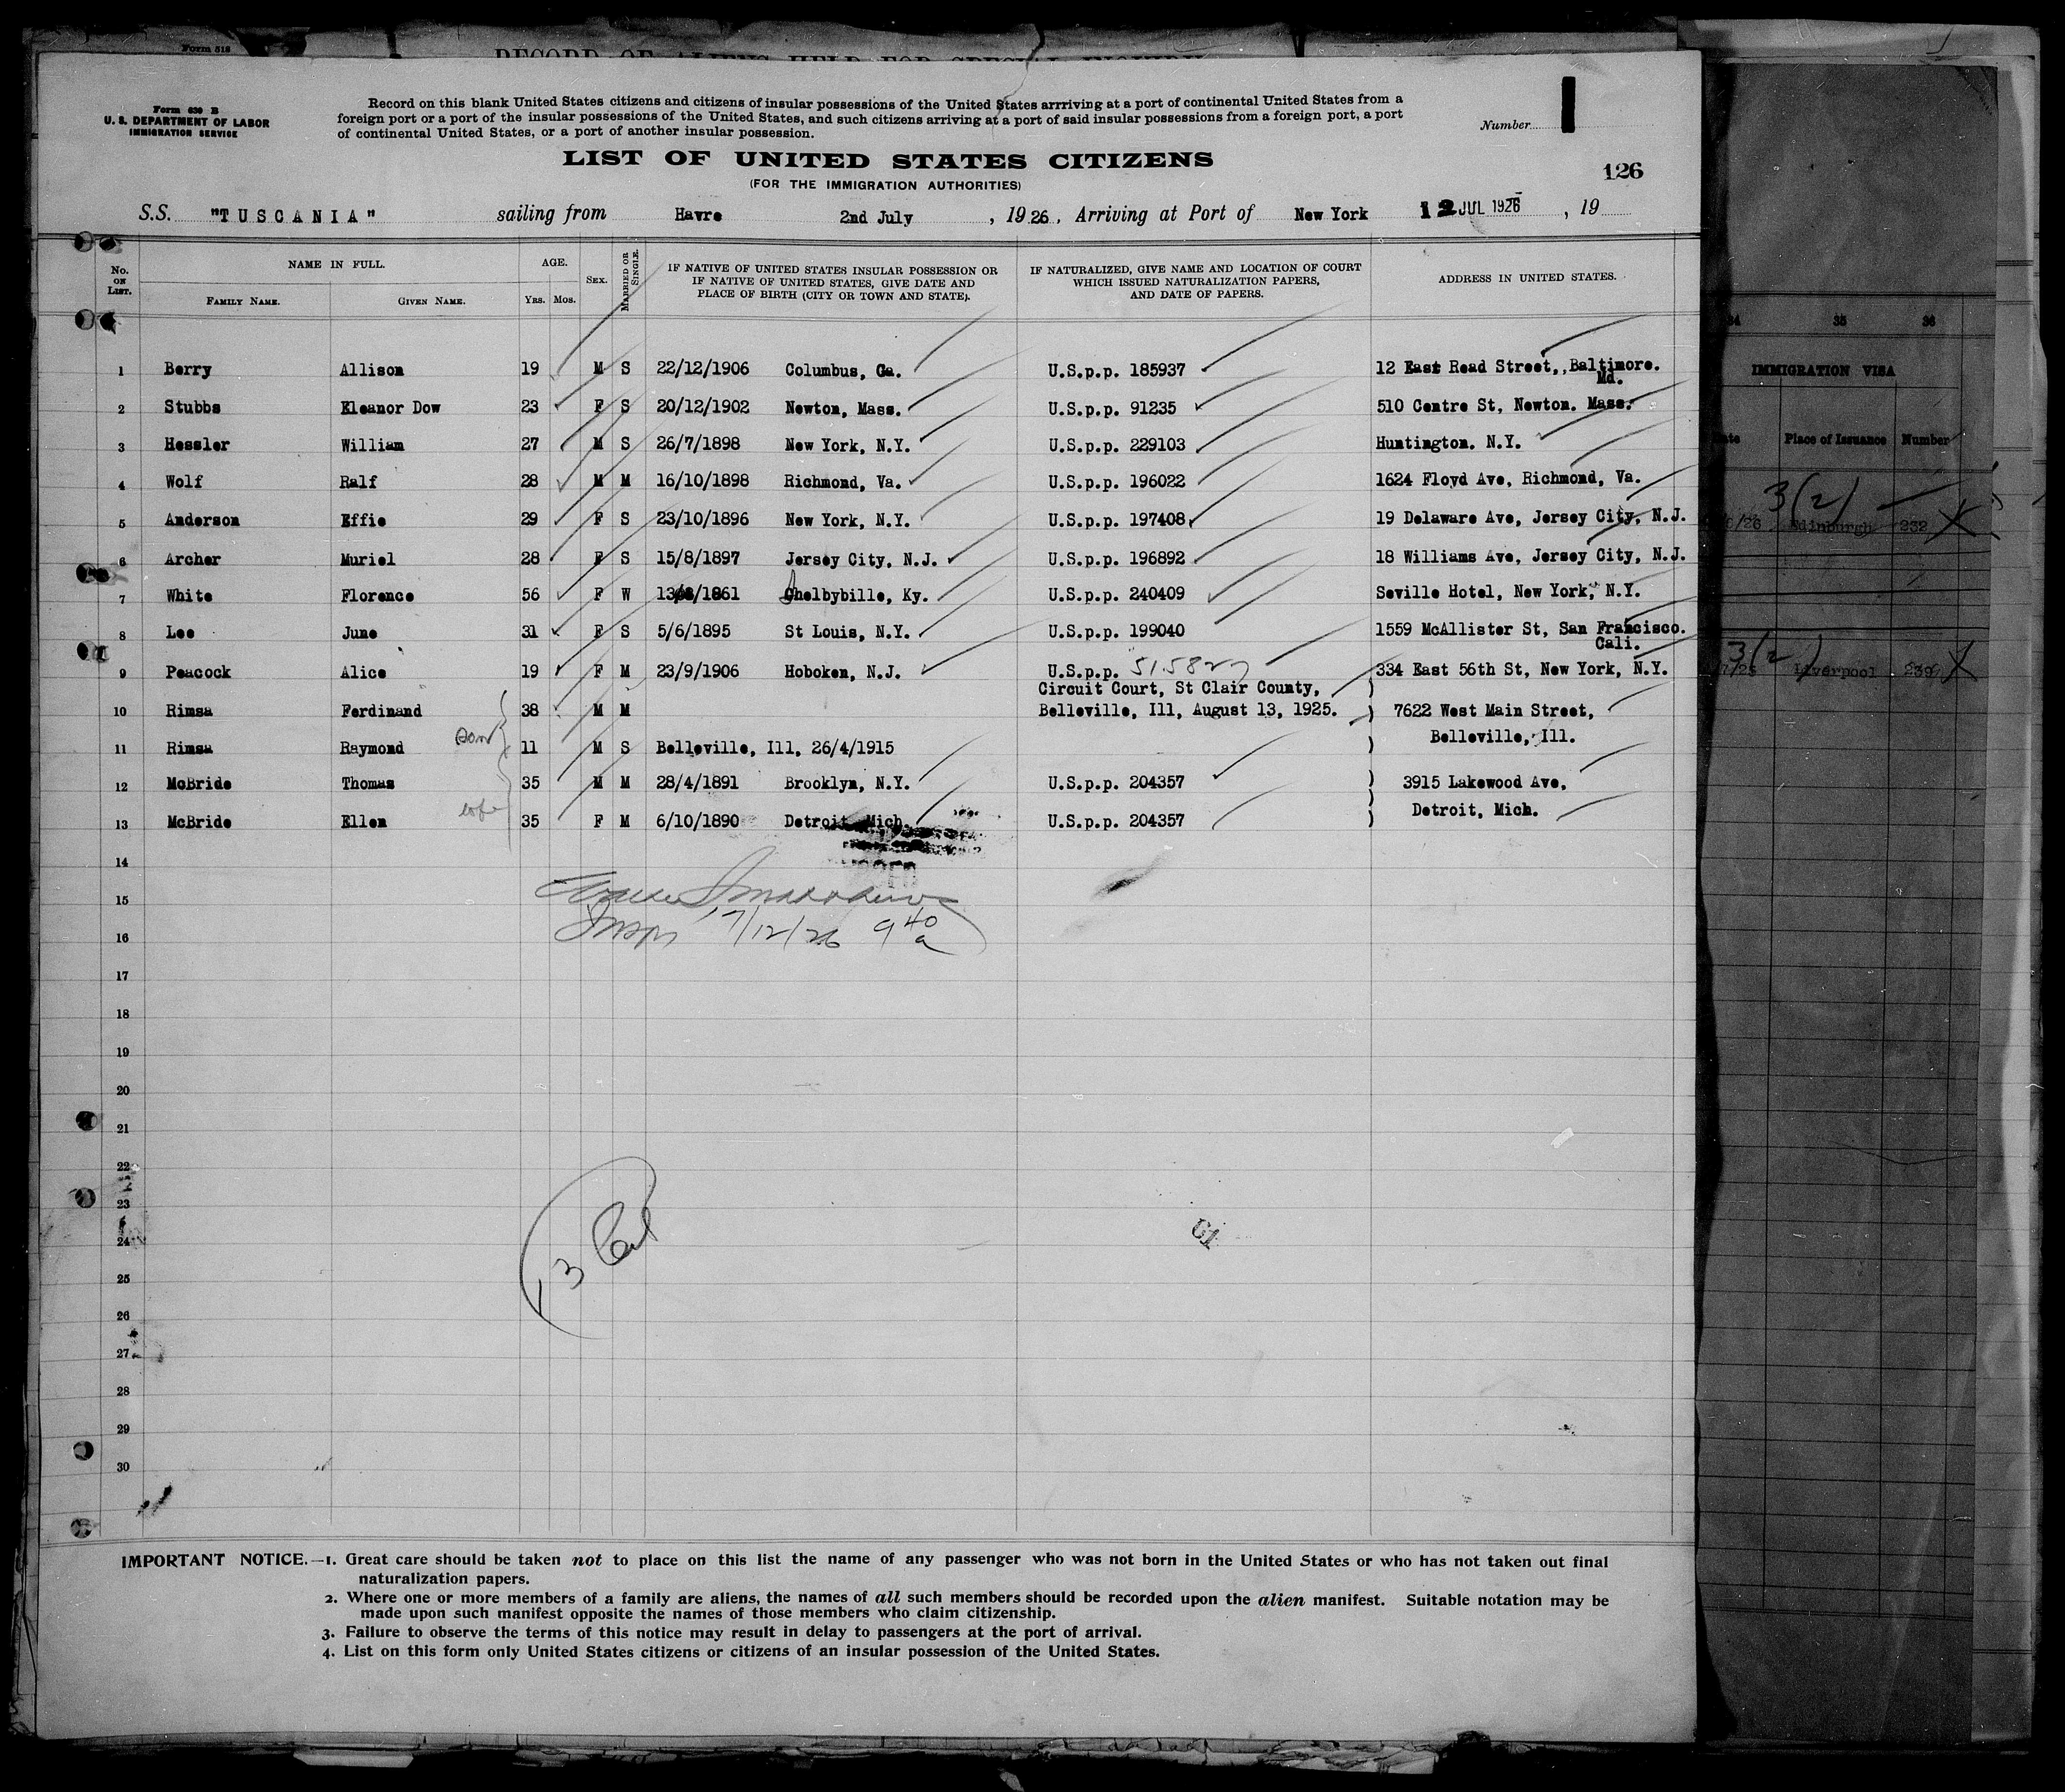 Form 518
RECORD OF ALIENS HELD FOR SPECIAL INQUIRY
Form 630 B
U. S. DEPARTMENT OF LABOR
IMMIGRATION SERVICE
Record on this blank United States citizens and citizens of insular possessions of the United States arrriving at a port of continental United States from a
foreign port or a port of the insular possessions of the United States, and such citizens arriving at a port of said insular possessions from a foreign port, a port
of continental United States, or a port of another insular possession.
Number
LIST OF UNITED STATES CITIZENS
(FOR THE IMMIGRATION AUTHORITIES)
126
S.S. "TUSCANIA" sailing from Havre 2nd July, 1926, Arriving at Port of New York 12 JUL 1926, 19
No. ON LIST. NAME IN FULL. AGE. SEX. MARRIED OR SINGLE. IF NATIVE OF UNITED STATES INSULAR POSSESSION OR IF NATIVE OF UNITED STATES, GIVE DATE AND PLACE OF BIRTH (CITY OR TOWN AND STATE). IF NATURALIZED, GIVE NAME AND LOCATION OF COURT WHICH ISSUED NATURALIZATION PAPERS, AND DATE OF PAPERS. ADDRESS IN UNITED STATES.
FAMILY NAME. GIVEN NAME. Yrs. Mos.
1 Berry Allison 19 M S 22/12/1906 Columbus, Ga. U.S.p.p. 185937 12 East Read Street,,Baltimore.
Md.
2 Stubbs Eleanor Dow 23 F S 20/12/1902 Newton, Mass. U.S.p.p. 91235 510 Centre St, Newton. Mass.
3 Hessler William 27 M S 26/7/1898 New York, N.Y. U.S.p.p. 229103 Huntington. N.Y.
4 Wolf Ralf 28 M M 16/10/1898 Richmond, Va. U.S.p.p. 196022 1624 Floyd Ave, Richmond, Va.
5 Anderson Effie 29 F S 23/10/1896 New York, N.Y. U.S.p.p. 197408 19 Delaware Ave, Jersey City, N.J.
6 Archer Muriel 28 F S 15/8/1897 Jersey City, N.J. U.S.p.p. 196892 18 Williams Ave, Jersey City, N.J.
7 White Florence 56 F W Shelbybille, Ky. U.S.p.p. 240409 Seville Hotel, New York, N.Y.
8 Lee June 31 F S 5/6/1895 St Louis, N.Y. U.S.p.p. 199040 1559 McAllister St, San Francisco.
Cali.
9 Peacock Alice 19 F M 23/9/1906 Hoboken, N.J. U.S.p.p. 515827 334 East 56th St, New York, N.Y.
Circuit Court, St Clair County,
10 Rimsa Ferdinand 38 M M Belleville, Ill, August 13, 1925. ) 7622 West Main Street,
son Belleville, Ill.
11 Rimsa Raymond 11 M S Belleville, Ill, 26/4/1915 )
12 McBride Thomas 35 M M 28/4/1891 Brooklyn, N.Y. U.S.p.p. 204357 ) 3915 Lakewood Ave,
wife ) Detroit, Mich.
13 McBride Ellen 35 F M 6/10/1890 Detroit, Mich. U.S.p.p. 204357 )
14
15
Inspr 7/12/26 9 40 a
16
17
18
19
20
21
22
23
24
25
26
27
28
29
30
13
IMPORTANT NOTICE.—1. Great care should be taken not to place on this list the name of any passenger who was not born in the United States or who has not taken out final
naturalization papers.
2. Where one or more members of a family are aliens, the names of all such members should be recorded upon the alien manifest. Suitable notation may be
made upon such manifest opposite the names of those members who claim citizenship.
3. Failure to observe the terms of this notice may result in delay to passengers at the port of arrival.
4. List on this form only United States citizens or citizens of an insular possession of the United States.
34 35 36
IMMIGRATION VISA
Place of Issuance Number
3(2)
/26 Edinburgh 232 X
3(2)
Liverpool X